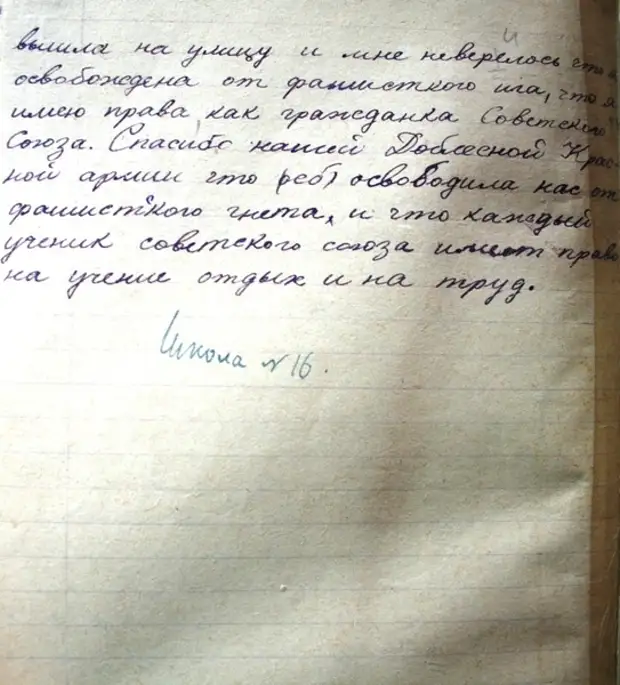 и
вышла на улицу и мне неверелось что я
освобождена от фашисткого ига, что я
имею права как гражданка Советского
Союза. Спасибо нашей Доблесной Крас-
ной армии что (еб) освободила нас от
фашистского гнета, и что каждый
ученик советского союза имеет право
на учение отдых и на труд.
Школа № 16.